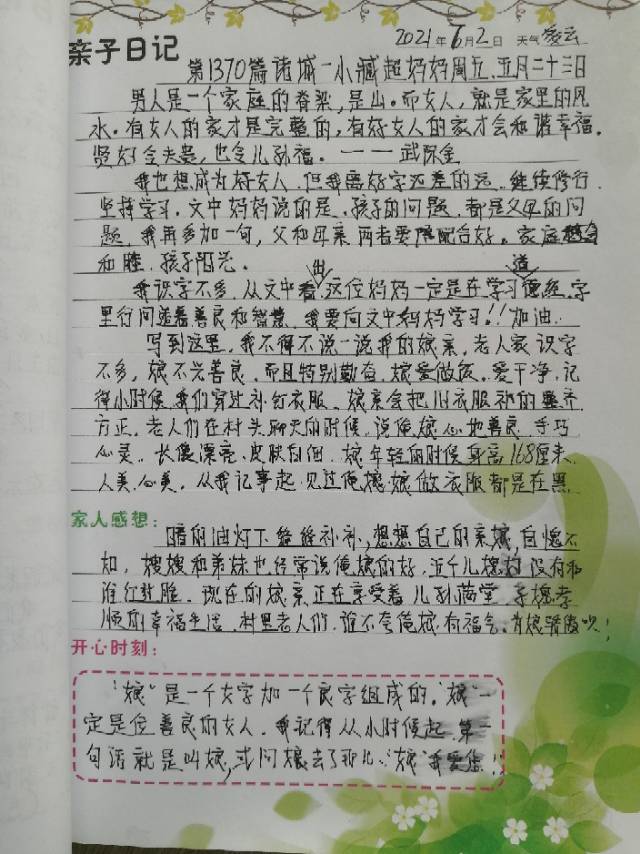 亲子日记
2021年6月2日 天气多云
第1370篇诸城一小臧超妈妈周五.五月二十三日
男人是一个家庭的脊梁,是山。而女人,就是家里的风
水。有女人的家才是完整的,有好女人的家才会和谐幸福。
贤妇令夫贵,也令儿孙福。——武际金
我也想成为好女人.但我离好字还差的远.继续修行.
坚持学习.文中妈妈说的是.孩子的问题.都是父母的问
题.我再多加一句,父和母亲两者要配合好。家庭
和睦.孩子阳光。
我识字不多.从文中看出这位妈妈一定是在学习道德经.字
里行间透着善良和智慧.我要向文中妈妈学习!!加油.
写到这里.我不得不说一说我的娘亲.老人家识字
不多,娘不光善良.而且特别勤奋.娘爱做饭.爱干净.记
得小时候我们穿过补钉衣服.娘亲会把旧衣服补的整齐
方正.老人们在村头聊天的时候.说俺娘心地善良.手巧
心灵.长像漂亮.皮肤白细.娘年轻的时候身高168厘米.
人美.心美.从我记事起.见过俺娘做衣服都是在黑
家人感想:
暗的油灯下缝缝补补,想想自己的亲娘,自愧不
如.嫂嫂和弟妹也经常说俺娘的好.五个儿媳没有和
谁红过脸.现在的娘亲正在享受着儿孙满堂.子媳孝
顺的幸福生活.村里老人们.谁不夸俺娘.有福气.有娘骄傲呗!
开心时刻:
"娘"是一个女字加一个良字组成的."娘"一
定是位善良的女人.我记得从小时候起.第一
句话就是叫娘,或问娘去了那儿."娘"我爱您!